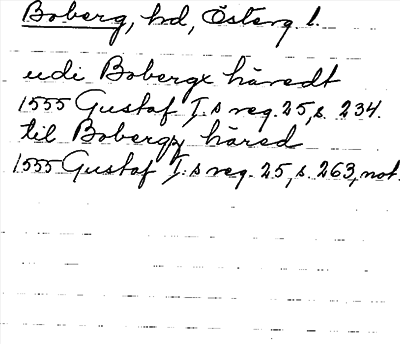 Boberg, hd, Österg l.
udi Bobergx häredt
1555 Gustaf I.s reg. 25, s. 234.
til Bobergx härad
1555 Gustaf I.s reg. 25, s. 263, not.